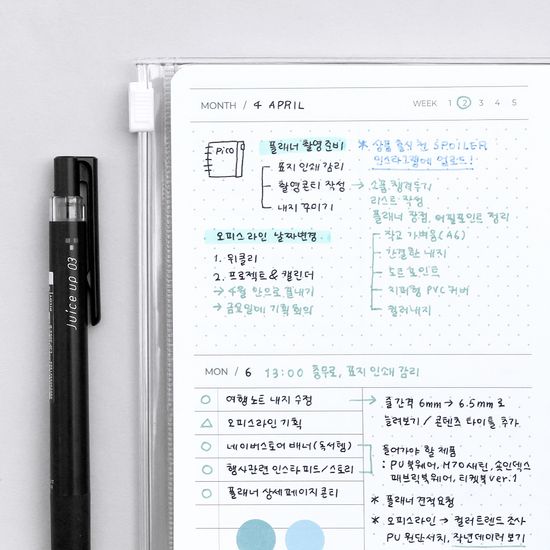 Juice up 03
MONTH / 4 APRIL
WEEK 1 2 3 4 5
Pico
플래너 촬영준비
표지 인쇄 감리
촬영콘티 작성
내지 꾸미기
* 상품 출시 전 SPOILER
인스타그램에 업로드!
→ 소품 챙겨두기
리스트 작성
플래너 장점, 어필포인트 정리
작고 가벼움(A6)
간결한 내지
도트 포인트
지퍼형 PVC 커버
컬러내지
오피스라인 날짜변경
1. 위클리
2. 프로젝트 & 캘린더
→ 4월 안으로 끝내기
→ 금요일에 기획회의
MON / 6 13:00 충무로, 표지 인쇄 감리
여행노트 내지 수정
→ 줄간격 6mm → 6.5mm로
눌러보기 / 콘텐츠 타이틀 추가
오피스라인 기획
네이버스토어 배너(독서템)
행사관련 인스타피드/스토리
들어가야 할 제품
: PU북웨어, M70새틴, 솜인덱스
패브릭북웨어, 티켓북 ver.1
플래너 상세페이지 콘티
* 플래너 견적요청
* 오피스라인 → 컬러트렌드 조사
PU 원단서치, 작년데이터 보기